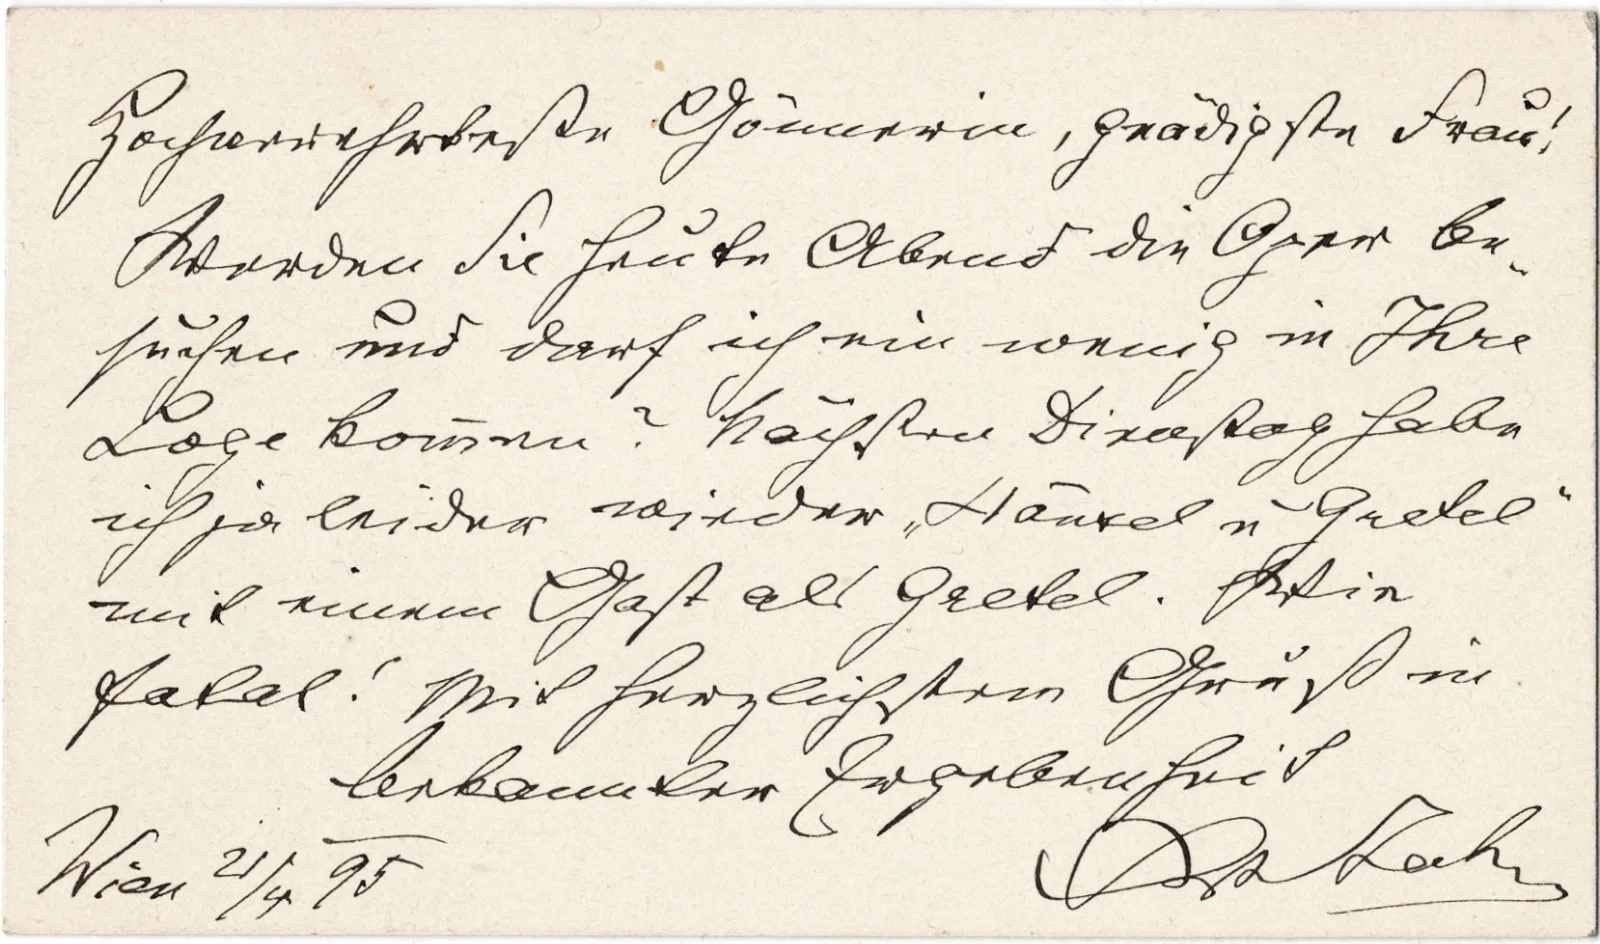 Hochverehrteste Gönnerin, gnädigste Frau!
Werden Sie heute Abend die Oper be-
suchen und darf ich ein wenig in Ihre
Loge kommen? Nächsten Dienstag habe
ich ja leider wieder „Hänsel u Gretel“
mit einem Gast als Gretel. Wie
fatal! Mit herzlichstem Gruß in
bekannter Ergebenheit
Wien 21/4 95